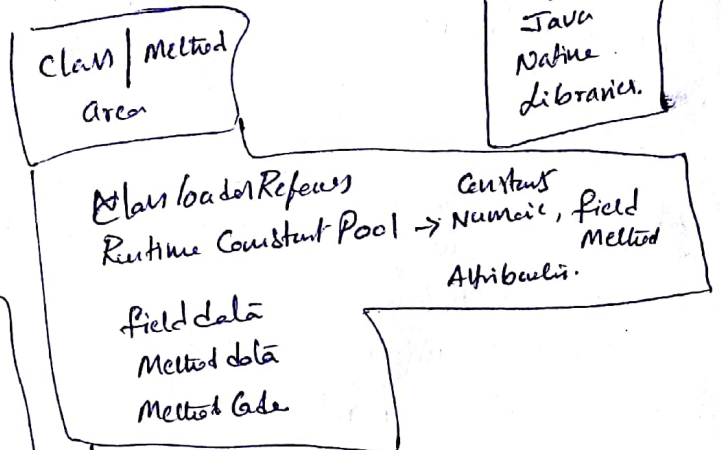 Class | Method
area
Java
Native
Libraries.
Classloader Referes
Runtime Constant Pool → Numeric, field
Constans
Method
Attributes.
field data
Method data
Method Code